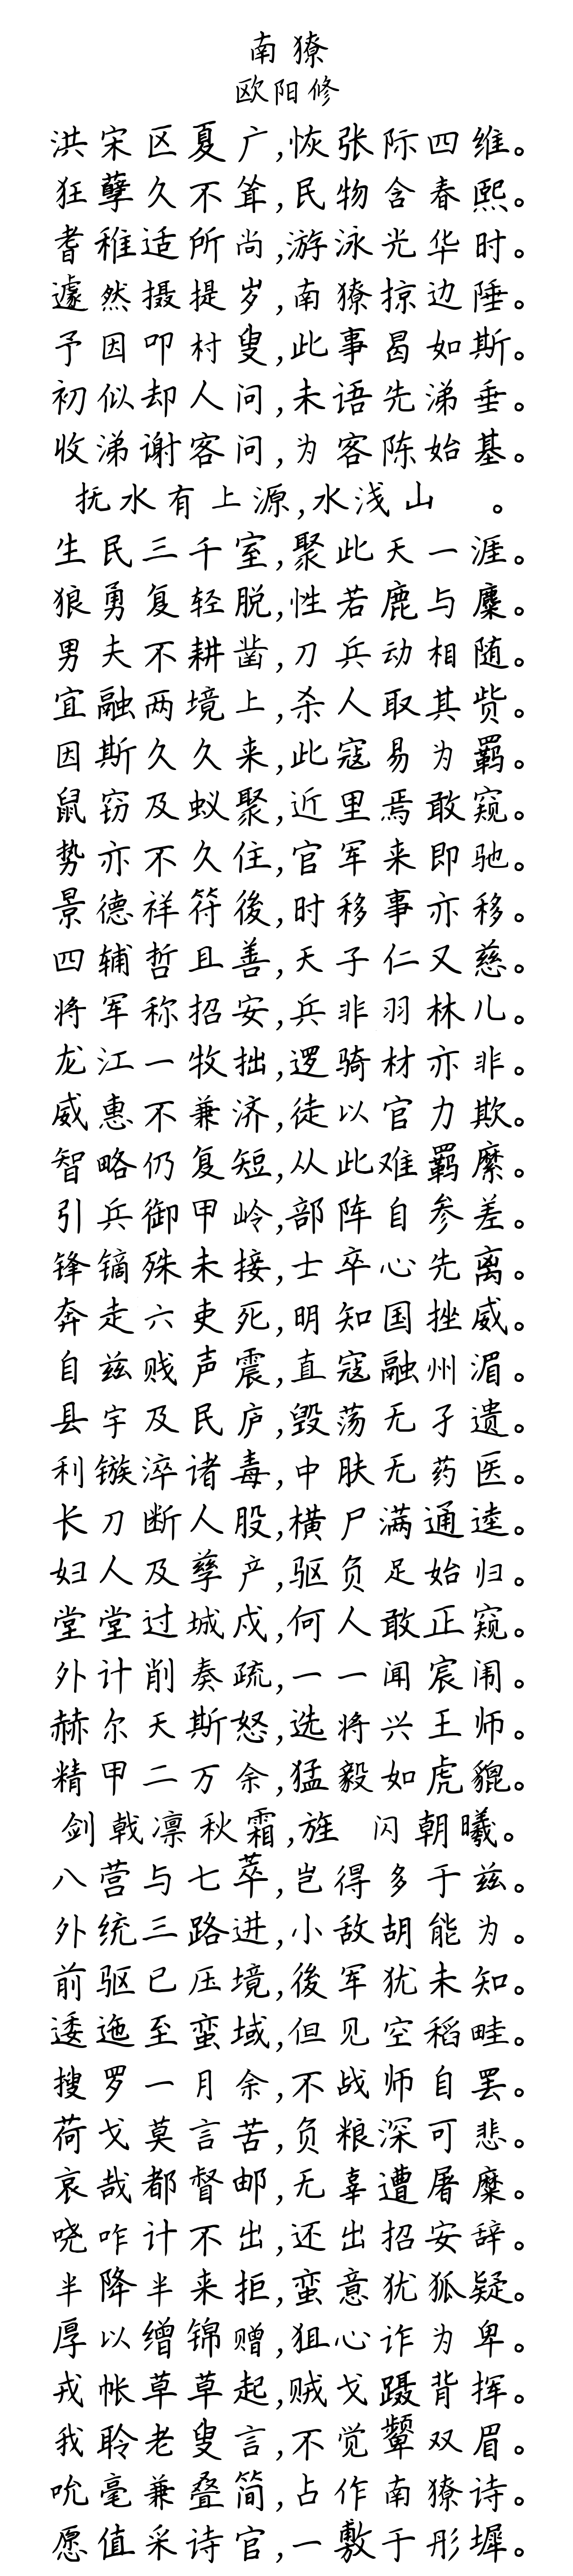 南獠
欧阳修
洪宋区夏广,恢张际四维。
狂孽久不耸,民物含春熙。
耆稚适所尚,游泳光华时。
遽然摄提岁,南獠掠边陲。
予因叩村叟,此事曷如斯。
初似却人问,未语先涕垂。
收涕谢客问,为客陈始基。
抚水有上源,水浅山 。
生民三千室,聚此天一涯。
狼勇复轻脱,性若鹿与麋。
男夫不耕凿,刀兵动相随。
宜融两境上,杀人取其赀。
因斯久久来,此寇易为羁。
鼠窃及蚁聚,近里焉敢窥。
势亦不久住,官军来即驰。
景德祥符後,时移事亦移。
四辅哲且善,天子仁又慈。
将军称招安,兵非羽林儿。
龙江一牧拙,逻骑材亦非。
威惠不兼济,徒以官力欺。
智略仍复短,从此难羁縻。
引兵御甲岭,部阵自参差。
锋镝殊未接,士卒心先离。
奔走六吏死,明知国挫威。
自兹贱声震,直寇融州湄。
县宇及民庐,毁荡无孑遗。
利镞淬诸毒,中肤无药医。
长刀断人股,横尸满通逵。
妇人及孳产,驱负足始归。
堂堂过城戍,何人敢正窥。
外计削奏疏,一一闻宸闱。
赫尔天斯怒,选将兴王师。
精甲二万余,猛毅如虎貔。
剑戟凛秋霜,旌 闪朝曦。
八营与七萃,岂得多于兹。
外统三路进,小敌胡能为。
前驱已压境,後军犹未知。
逶迤至蛮域,但见空稻畦。
搜罗一月余,不战师自罢。
荷戈莫言苦,负粮深可悲。
哀哉都督邮,无辜遭屠糜。
哓咋计不出,还出招安辞。
半降半来拒,蛮意犹狐疑。
厚以缯锦赠,狙心诈为卑。
戎帐草草起,贼戈蹑背挥。
我聆老叟言,不觉颦双眉。
吮毫兼叠简,占作南獠诗。
愿值采诗官,一敷于彤墀。